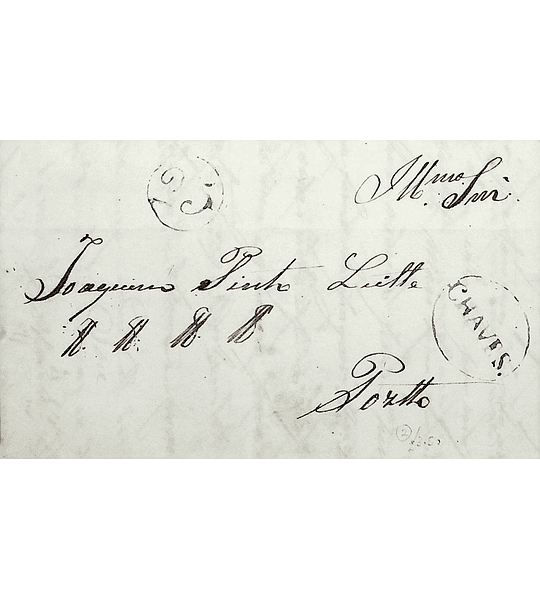 25
Illmo. Snr.
Joaquim Pinto Leitte
CHAVES.
Portto
2